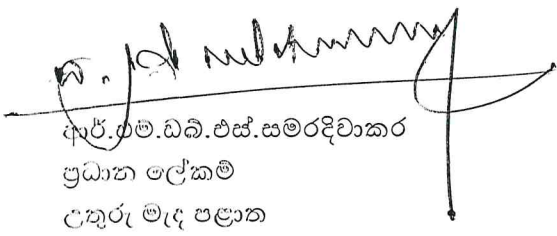 ආර්.එම්.ඩබ්.එස්.සමරදිවාකර
ප්‍රධාන ලේකම්
උතුරු මැද පළාත